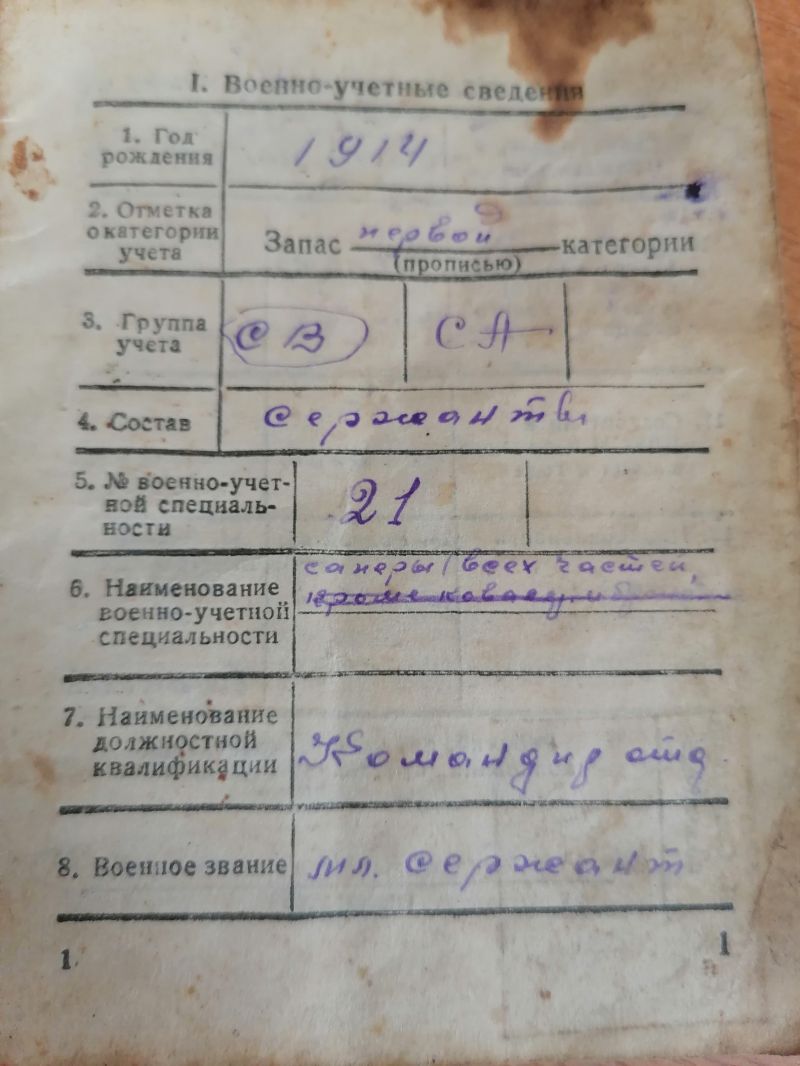 I. Военно-учетные сведения
1. Год
рождения
1914
2. Отметка
о категории
учета
Запас первой категории
(прописью)
3. Группа
учета
СВ
СА
4. Состав
сержантвы
5. № военно-учет-
ной специаль-
ности
21
6. Наименование
военно-учетной
специальности
саперы всех частей,
кроме
7. Наименование
должностной
квалификации
Командир отд
8. Военное звание
мл. сержант
1
1